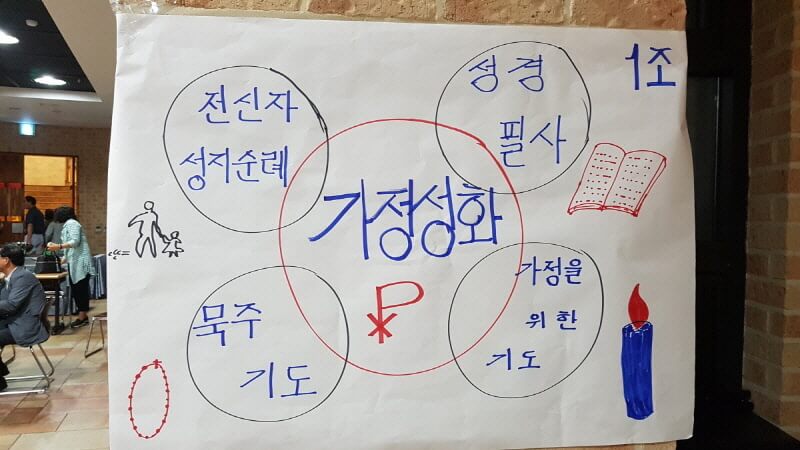 1조
전신자
성지순례
성경
필사
가정성화
묵주
기도
가정을
위한
기도